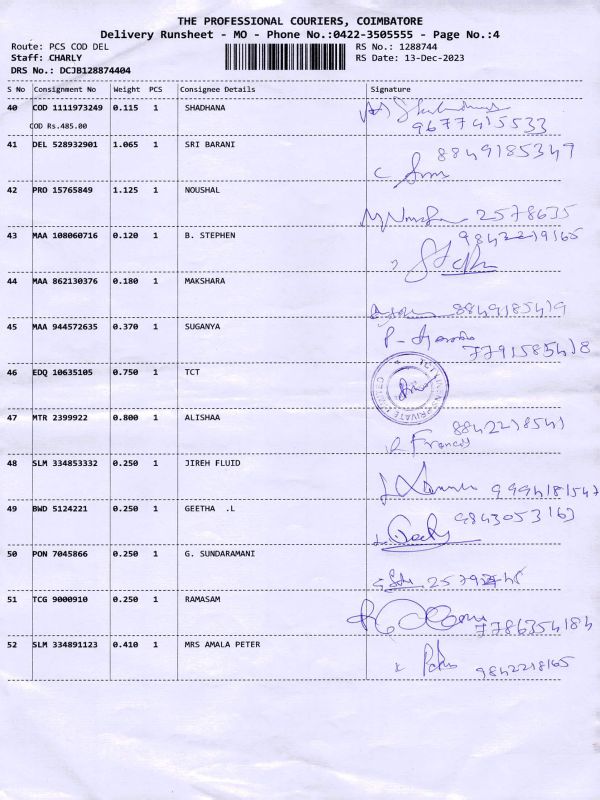 THE PROFESSIONAL COURIERS, COIMBATORE
Delivery Runsheet - MO - Phone No.:0422-3505555 - Page No.:4
Route: PCS COD DEL RS No.: 1288744
Staff: CHARLY RS Date: 13-Dec-2023
DRS No.: DCJB128874404
S No Consignment No Weight PCS Consignee Details Signature
40 COD 1111973249 0.115 1 SHADHANA
COD Rs.485.00 9677415533
41 DEL 528932901 1.065 1 SRI BARANI 8849185349
42 PRO 15765849 1.125 1 NOUSHAL
2578635
43 MAA 108060716 0.120 1 B. STEPHEN
44 MAA 862130376 0.180 1 MAKSHARA
8849185419
45 MAA 944572635 0.370 1 SUGANYA
7791585418
46 EDQ 10635105 0.750 1 TCT
47 MTR 2399922 0.800 1 ALISHAA
Francy
48 SLM 334853332 0.250 1 JIREH FLUID
9994181547
49 BWD 5124221 0.250 1 GEETHA .L 9843053163
50 PON 7045866 0.250 1 G. SUNDARAMANI
51 TCG 9000910 0.250 1 RAMASAM
7786354184
52 SLM 334891123 0.410 1 MRS AMALA PETER
9842218165